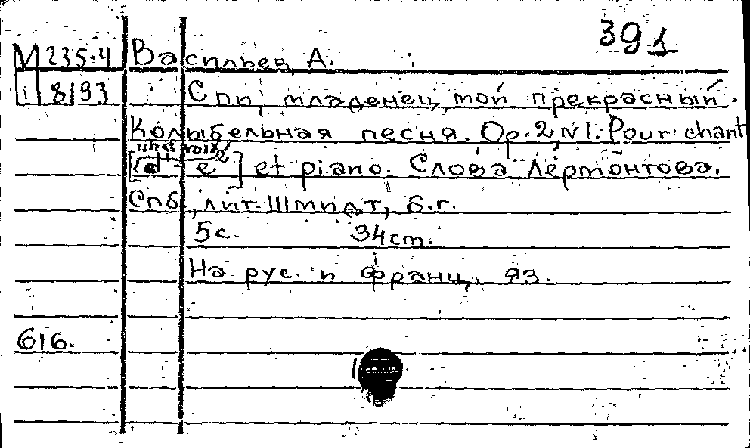 391
М 235.4 Васильев, А.
1 8193 Спи, младенец мой прекрасный.
Колыбельная песня. Op.2, N1. Pour chant
[d - e] et piano. Слова Лермонтова.
Спб., лит. Шмидт, б.г.
5с. 34см.
На рус. и франц. яз.
616.